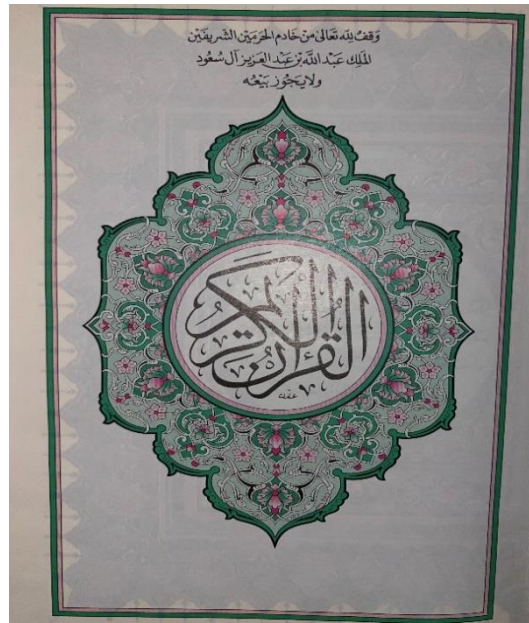 وَقفٌ لِلّه تَعَالىٰ مِنْ خَادِم الحَرَمَيْن الشَّرِيفَيْن
المَلِك عَبْد اللَّه بْن عَبْد العَزِيز آل سُعُود
وَلا يَجُوز بَيْعُه
القُرْآن الكَرِيم